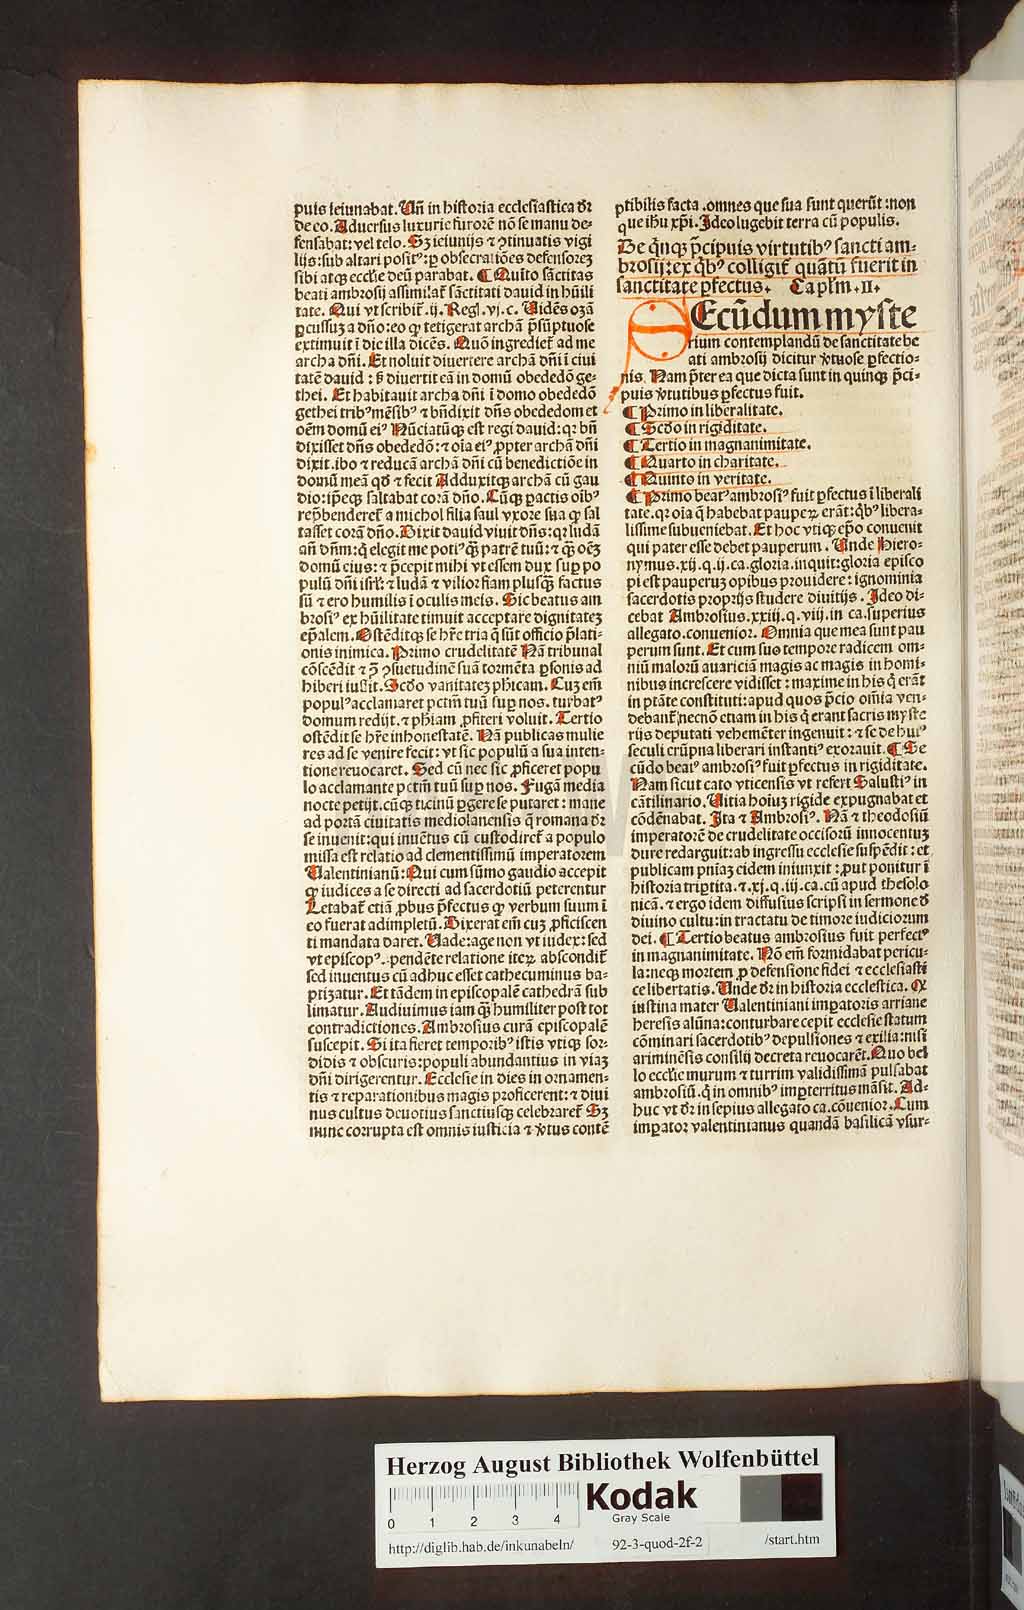 puis ieiunabat. Uñ in historia ecclesiastica dr̄
de eo. Aduersus luxurie furorē nō se manu de-
fensabat: vel telo. Sꝫ ieiunijs ⁊ ꝯtinuatis vigi
lijs: sub altari positꝰ: ꝑ obsecratiōes defensoreꝫ
sibi atqꝫ eccl̄ie deū parabat. ¶ Quīto sāctitas
beati ambrosij assimilat̄ sāctitati dauid in hūili
tate. Qui vt scribit̄. ij. Reg. vj. c. Uidēs ozā
ꝑcussuꝫ a dño: eo ꝙ tetigerat archā p̄sūptuose
extimuit ī die illa dicēs. Quō ingrediet̄ ad me
archa dñi. Et noluit diuertere archā dñi ī ciui
tatē dauid : sꝫ diuertit eā in domū obededō ge-
thei. Et habitauit archa dñi ī domo obededō
gethei tribꝰ mēsibꝰ ⁊ bñdixit dñs obededom et
oēm domū eiꝰ Nūciatūqꝫ est regi dauid: qꝛ bñ
dixisset dñs obededō: ⁊ oīa eiꝰ ꝓpter archā dñi
dixit. ibo ⁊ reducā archā dñi cū benedictiōe in
domū meā qđ ⁊ fecit Adduxitqꝫ archā cū gau
dio: ip̄eqꝫ saltabat corā dño. Cūqꝫ ꝑactis oībꝰ
rep̄henderet̄ a michol filia saul vxore sua ꝙ sal
tasset corā dño. Dixit dauid viuit dñs: qꝛ ludā
añ dñm: q̇ elegit me potiꝰ qꝫ̄ patrē tuū: ⁊ qꝫ̄ oēꝫ
domū eius: ⁊ p̄cepit mihi vt essem dux suꝑ po
pulū dñi isrl̄: ⁊ ludā ⁊ vilior fiam plusqꝫ̄ factus
sū ⁊ ero humilis ī oculis meis. Sic beatus am
brosiꝰ ex hūilitate timuit acceptare dignitateꝫ
ep̄alem. Ostēditqꝫ se hr̄e tria q̄ sūt officio p̄lati-
onis inimica. Primo crudelitatē Nā tribunal
cōscēdit ⁊ ꝯ̄ ꝯsuetudinē suā tormēta ꝑsonis ad
hiberi iussit. Scđo vanitateꝫ ph̄icam. Cuꝫ em̄
populꝰ acclamaret pctm̄ tuū suꝑ nos. turbatꝰ
domum redijt. ⁊ ph̄iam ꝓfiteri voluit. Tertio
ostēdit se hr̄e inhonestatē. Nā publicas mulie
res ad se venire fecit: vt sic populū a sua inten-
tione reuocaret. Sed cū nec sic ꝓficeret popu
lo acclamante pctm̄ tuū suꝑ nos. Fugā media
nocte petijt. cūqꝫ ticinū ꝑgere se putaret: mane
ad portā ciuitatis mediolanensis q̄ romana dr̄
se inuenit: qui inuētus cū custodiret̄ a populo
missa est relatio ad clementissimū imperatorem
Ualentinianū: Qui cum sūmo gaudio accepit
ꝙ iudices a se directi ad sacerdotiū peterentur
Letabat̄ etiā ꝓbus p̄fectus ꝙ verbum suum ī
eo fuerat adimpletū. Dixerat em̄ cuꝫ ꝓficiscen
ti mandata daret. Uade: age non vt iudex: sed
vt episcopꝰ. pendēte relatione iteꝝ abscondit̄
sed inuentus cū adhuc esset cathecuminus ba-
ptizatur. Et tādem in episcopalē cathedrā sub
limatur. Audiuimus iam qꝫ̄ humiliter post tot
contradictiones. Ambrosius curā episcopalē
suscepit. Si ita fieret temporibꝰ istis vtiqꝫ sor-
didis ⁊ obscuris: populi abundantius in viaꝫ
dñi dirigerentur. Ecclesie in dies in ornamen-
tis ⁊ reparationibus magis proficerent: ⁊ diui
nus cultus deuotius sanctiusqꝫ celebraret̄ Sꝫ
nunc corrupta est omnis iusticia ⁊ v̓tus contē
ptibilis facta. omnes que sua sunt querūt: non
que ihu xp̄i. Ideo lugebit terra cū populis.
De q̇nqꝫ p̄cipuis virtutibꝰ sancti am-
brosij: ex q̇bꝰ colligit̄ quātū fuerit in
sanctitate ꝑfectus. Capl̄m .II.
SEcūdum myste
rium contemplandū de sanctitate be
ati ambrosij dicitur v̓tuose ꝑfectio-
nis. Nam p̄ter ea que dicta sunt in quinqꝫ p̄ci-
puis v̓tutibus ꝑfectus fuit.
¶ Primo in liberalitate.
¶ Scđo in rigiditate.
¶ Tertio in magnanimitate.
¶ Quarto in charitate.
¶ Quinto in veritate.
¶ Primo beatꝰ ambrosiꝰ fuit ꝑfectus ī liberali
tate. qꝛ oīa q̄ habebat pauperꝝ erāt: q̇bꝰ libera-
lissime subueniebat. Et hoc vtiqꝫ ep̄o conuenit
qui pater esse debet pauperum. Unde Hiero-
nymus. xij. q. ij. ca. gloria. inquit: gloria episco
pi est pauperuꝫ opibus prouidere: ignominia
sacerdotis proprijs studere diuitijs. Ideo di-
cebat Ambrosius. xxiij. q. viij. in ca. superius
allegato. conuenior. Omnia que mea sunt pau
perum sunt. Et cum suo tempore radicem om-
niū malorū auariciā magis ac magis in homi-
nibus increscere vidisset: maxime in his q̇ erāt
in ptāte constituti: apud quos p̄cio om̄ia ven-
debant̄ necnō etiam in his q̇ erant sacris myste
rijs deputati vehemēter ingenuit: ⁊ se de huiꝰ
seculi erūpna liberari instantiꝰ exorauit. ¶ Se
cūdo beatꝰ ambrosiꝰ fuit ꝑfectus in rigiditate.
Nam sicut cato vticensis vt refert Salustiꝰ in
cātilinario. Uitia hoiuꝫ rigide expugnabat et
cōdēnabat. Ita ⁊ Ambrosiꝰ. Nā ⁊ theodosiū
imperatorē de crudelitate occisorū innocentuꝫ
dure redarguit: ab ingressu ecclesie suspēdit: et
publicam pniaꝫ eidem iniunxit: ꝓut ponitur ī
historia trip̄tita. ⁊. xj. q. iij. ca. cū apud thesolo
nicā. ⁊ ergo idem diffusius scripsi in sermone đ
diuino cultu: in tractatu de timore iudiciorum
dei. ¶ Tertio beatus ambrosius fuit perfectꝰ
in magnanimitate. Nō em̄ formidabat pericu-
la: neqꝫ mortem ꝓ defensione fidei ⁊ ecclesiasti
ce libertatis. Unde dr̄ in historia ecclestica. Qꝫ
iustina mater Ualentiniani imꝑatoris arriane
heresis alūna: conturbare cepit ecclesie statum
cōminari sacerdotibꝰ depulsiones ⁊ exilia: nisi
ariminēsis consilij decreta reuocarēt. Quo bel
lo eccl̄ie murum ⁊ turrim validissimā pulsabat
ambrosiū. q̇ in omnibꝰ imꝑterritus māsit. Ad-
huc vt dr̄ in sepius allegato ca. cōuenior. Cum
imꝑator valentinianus quandā basilicā vsur-
Herzog August Bibliothek Wolfenbüttel
Kodak
Gray Scale
0 1 2 3 4
http://diglib.hab.de/inkunabeln/ 92-3-quod-2f-2 /start.htm